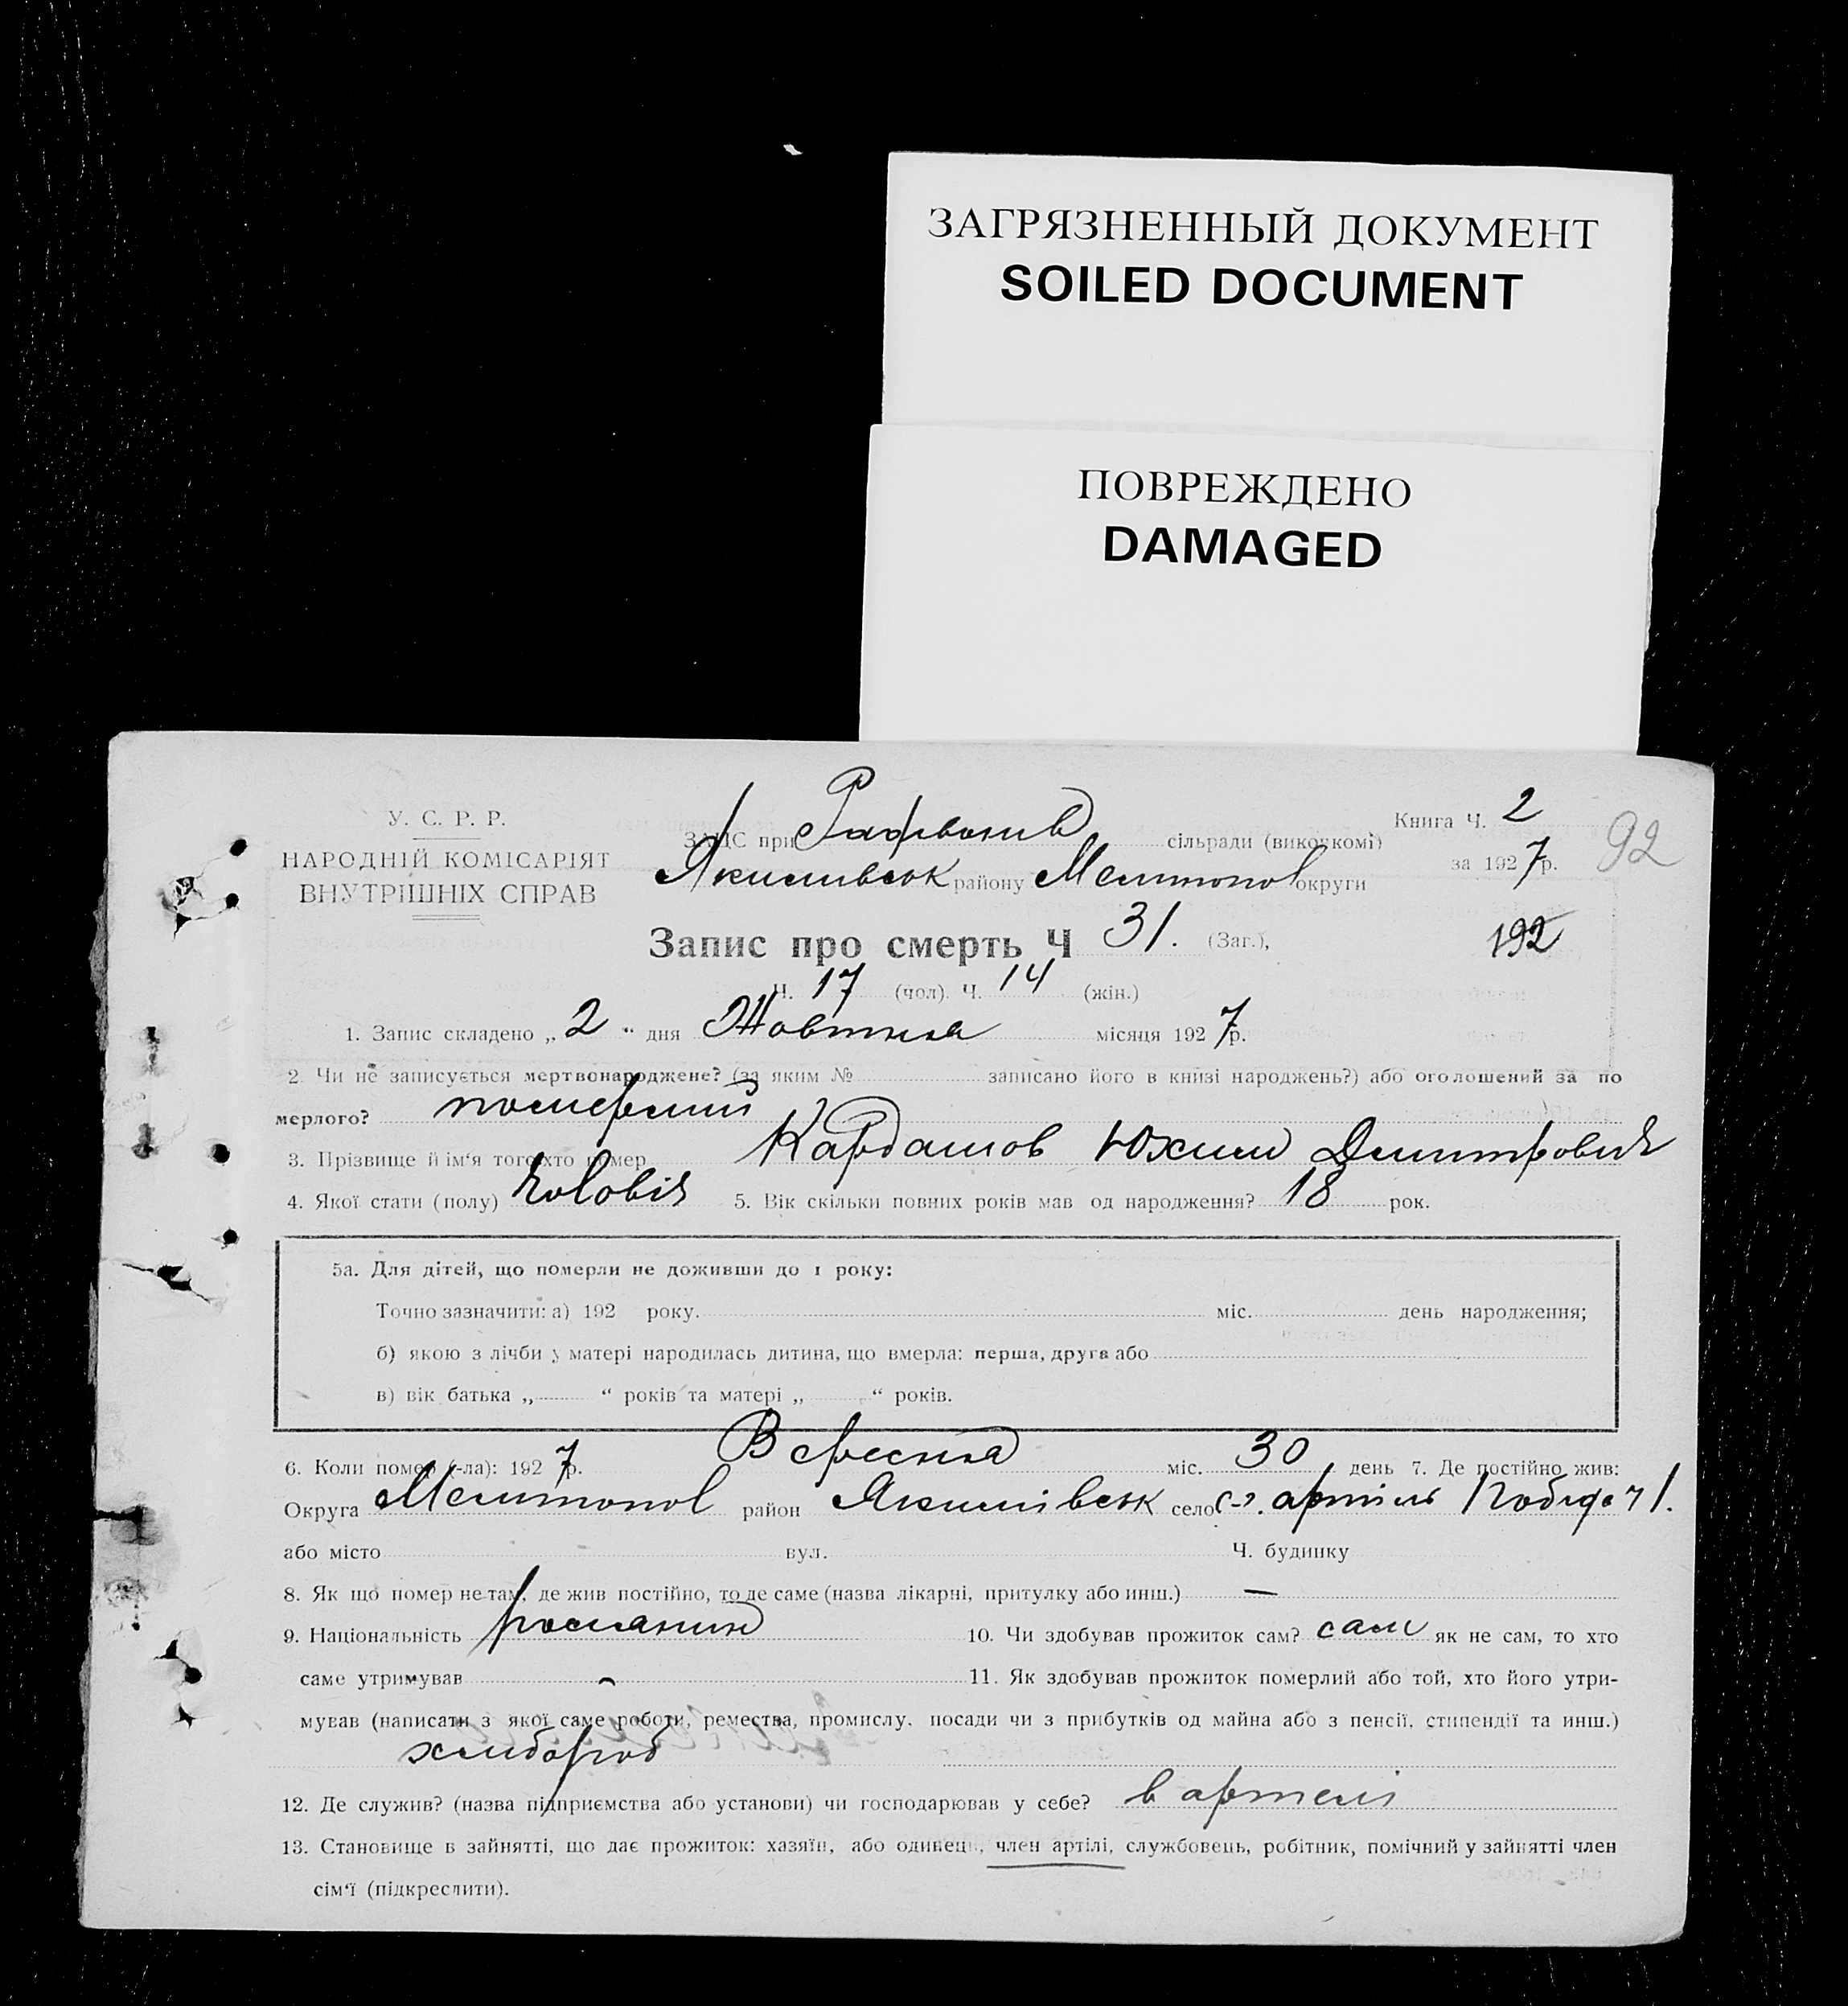 ЗАГРЯЗНЕННЫЙ ДОКУМЕНТ
SOILED DOCUMENT
ПОВРЕЖДЕНО
DAMAGED
У. С. Р. Р.
НАРОДНІЙ КОМІСАРІЯТ
ВНУТРІШНІХ СПРАВ
ЗАГС при сільради (виконкомі)
Якимивськ району Мелитопол округи
Книга Ч. 2
за 1927 р.
92
Запис про смерть Ч 31. (Заг.),
192
Ч. 17 (чол). Ч. 14 (жін.)
1. Запис складено „ 2 “ дня Жовтня місяця 1927 р.
2. Чи не записується мертвонароджене? (за яким № записано його в книзі народжень?) або оголошений за по
мерлого? померший
3. Прізвище й ім‘я того хто помер Кардашов Юхим Дмитрович
4. Якої стати (полу) чоловіч 5. Вік скільки повних років мав од народження? 18 рок.
5а. Для дітей, що померли не доживши до 1 року:
Точно зазначити: а) 192 року. міс. день народження;
б) якою з лічби у матері народилась дитина, що вмерла: перша, друга або
в) вік батька „ “ років та матері „ “ років.
6. Коли помер (-ла): 1927 р. Вересня міс. 30 день 7. Де постійно жив:
Округа Мелитопол район Якимівськ село с-г. артіль
або місто вул. Ч. будинку
8. Як що помер не там, де жив постійно, то де саме (назва лікарні, притулку або инш.) —
9. Національність росіянин 10. Чи здобував прожиток сам? сам як не сам, то хто
саме утримував - 11. Як здобував прожиток померлий або той, хто його утри-
мував (написати з якої саме роботи, ремества, промислу, посади чи з прибутків од майна або з пенсії, стипендії та инш.)
хлибороб
12. Де служив? (назва підприємства або установи) чи господарював у себе? в артелі
13. Становище в зайнятті, що дає прожиток: хазяїн, або одинець, член артілі, службовець, робітник, помічний у зайнятті член
сім‘ї (підкреслити).